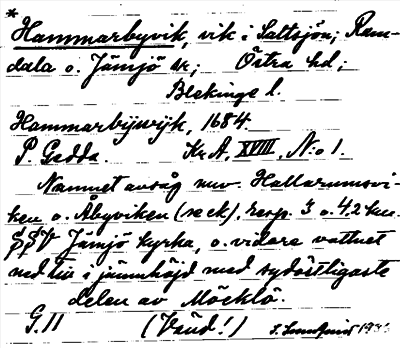 *
Hammarbyvik, vik i Saltsjön; Ram-
dala o. Jämjö sr; Östra hd;
Blekinge l.
Hammarbÿwijk, 1684.
P. Gedda. Kr. A, XVIII, N:o 1.
Namnet avsåg nuv. Hallarumsvi-
ken o. Åbyviken (se ek), resp. 3 o. 4,2 km.
Jämjö kyrka, o. vidare vattnet
ned till i jämnhöjd med sydöstligaste
delen av Möcklö.
G. 11 (Vänd!)